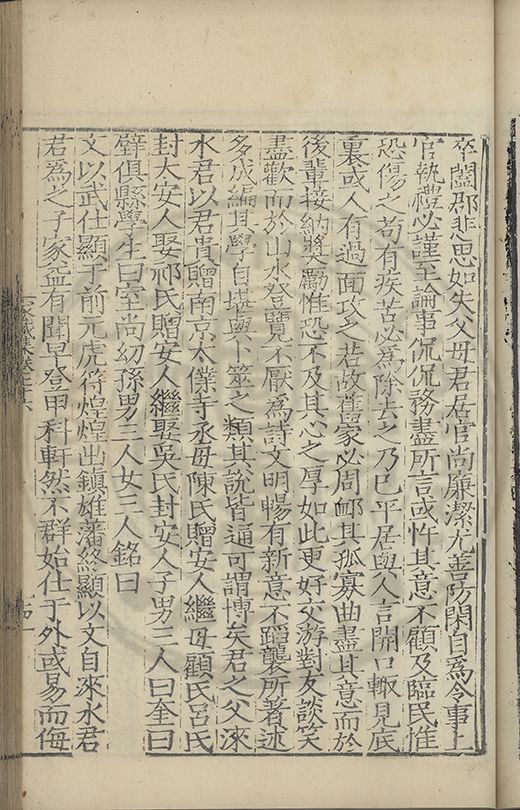 卒闔郡悲思如失父母君居官尚廉潔尤善防閑自為令事上
官執禮必謹至論事侃侃務盡所言或忤其意不顧及臨民惟
恐傷之苟有疾苦必為除去之乃已平居與人言開口輒見底
裏或人有過面攻之若故舊家必周卹其孤寡曲盡其意而於
後輩接納奬勵惟恐不及其心之厚如此更好交游對友談笑
盡歡而於山水登覽不厭為詩文明暢有新意不蹈襲所著述
多成編其學自堪輿卜筮之類其說皆通可謂博矣君之父淶
水君以君貴贈南京太僕寺丞母陳氏贈安人繼母顧氏呂氏
封太安人娶祁氏贈安人繼娶吳氏封安人子男三人曰奎曰
壁俱縣學生曰室尚幼孫男三人女三人銘曰
文以武仕顯于前元虎符煌煌出鎮雄藩終顯以文自淶水君
君為之子家益有聞早登甲科軒然不群始仕于外或易而侮
家藏集卷之十六